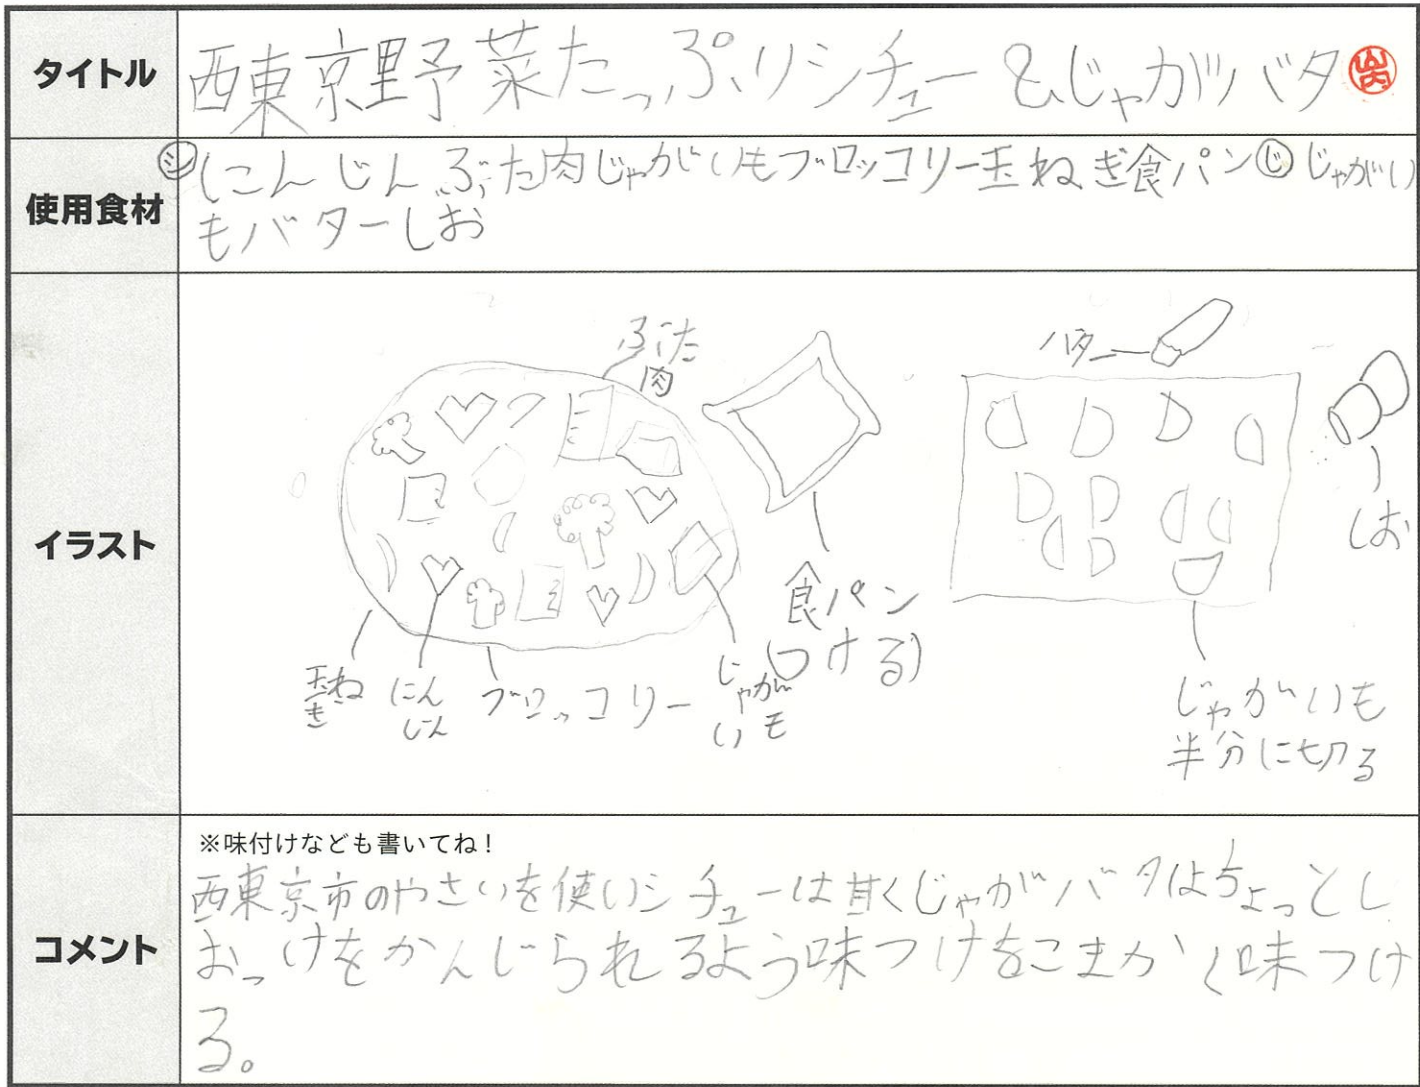 タイトル
西東京野菜たっぷりシチュー&じゃがバタ
山内
使用食材
シ にんじんぶた肉じゃがいもブロッコリー玉ねぎ食パン じ じゃがい
もバターしお
イラスト
ぶた
肉
バター
しお
食パン
(つける)
玉ね
ぎ
にん
じん
ブロッコリー
じ
ゃが
いも
じゃがいも
半分に切る
コメント
※味付けなども書いてね!
西東京市のやさいを使いシチューは甘くじゃがバタはちょっとし
おっけをかんじられるよう味つけをこまかく味つけ
る。